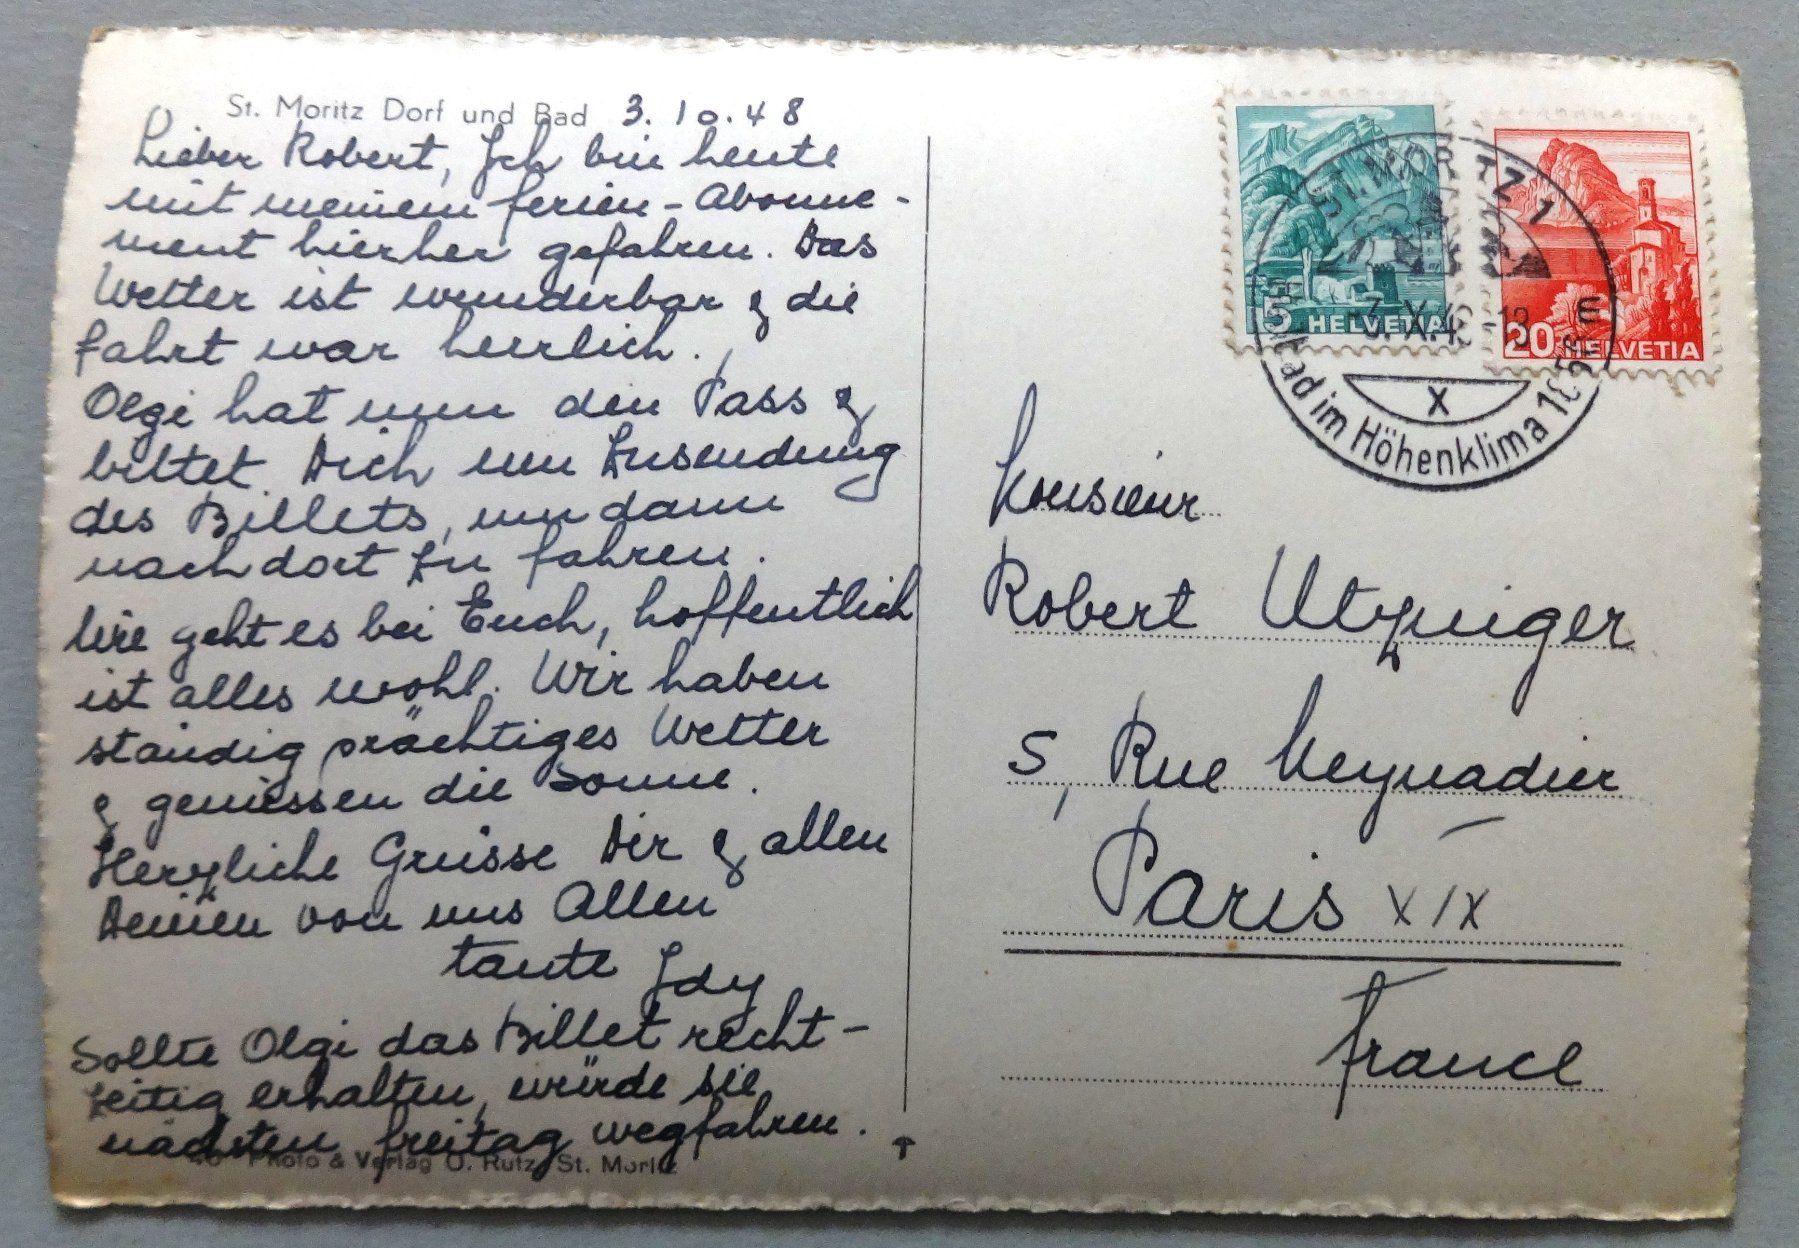 St. Moritz Dorf und Bad 3.10.48
Lieber Robert, Ich bin heute
mit meinem ferien-Abonne-
ment hierher gefahren. Das
Wetter ist wunderbar & die
fahrt war herrlich.
Olgi hat nun den Pass &
bittet Dich um Zusendung
des Billets, um dann
nach dort zu fahren.
Wie geht es bei Euch, hoffentlich
ist alles wohl. Wir haben
ständig prächtiges Wetter
& geniessen die Sonne.
Herzliche Grüsse Dir & allen
Deinen von uns Allen
tante Idy
Sollte Olgi das Billet recht-
zeitig erhalten, würde sie
nächsten freitag wegfahren.
Photo & Verlag O. Rutz, St. Moritz
5 HELVETIA
20 HELVETIA
ST. MORITZ 1
-3.X.48
X
im Höhenklima
Monsieur
Robert Utzinger
5, Rue Meynadier
Paris XIX
france